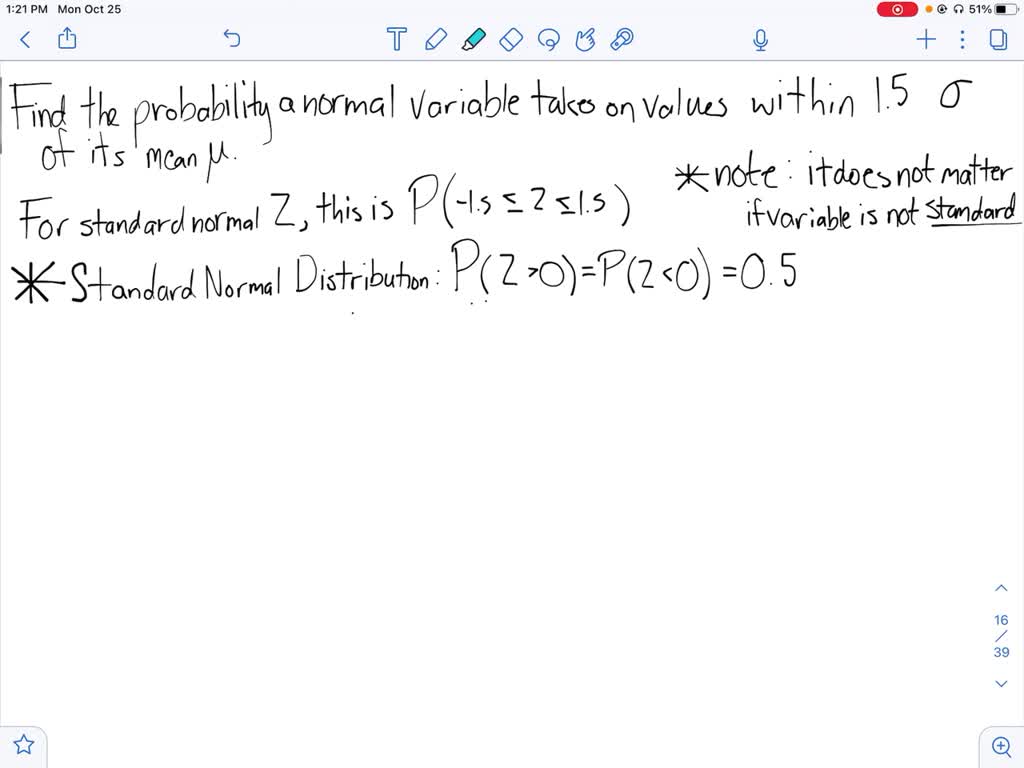 1:21 PM Mon Oct 25
51%
T
Find the probability a normal variable takes on values within 1.5 σ
of its mean μ.
*note: it does not matter
if variable is not standard
For standard normal Z, this is P(-1.5 ≤ Z ≤ 1.5)
* Standard Normal Distribution: P(Z>0)=P(Z<0)=0.5
16
/
39